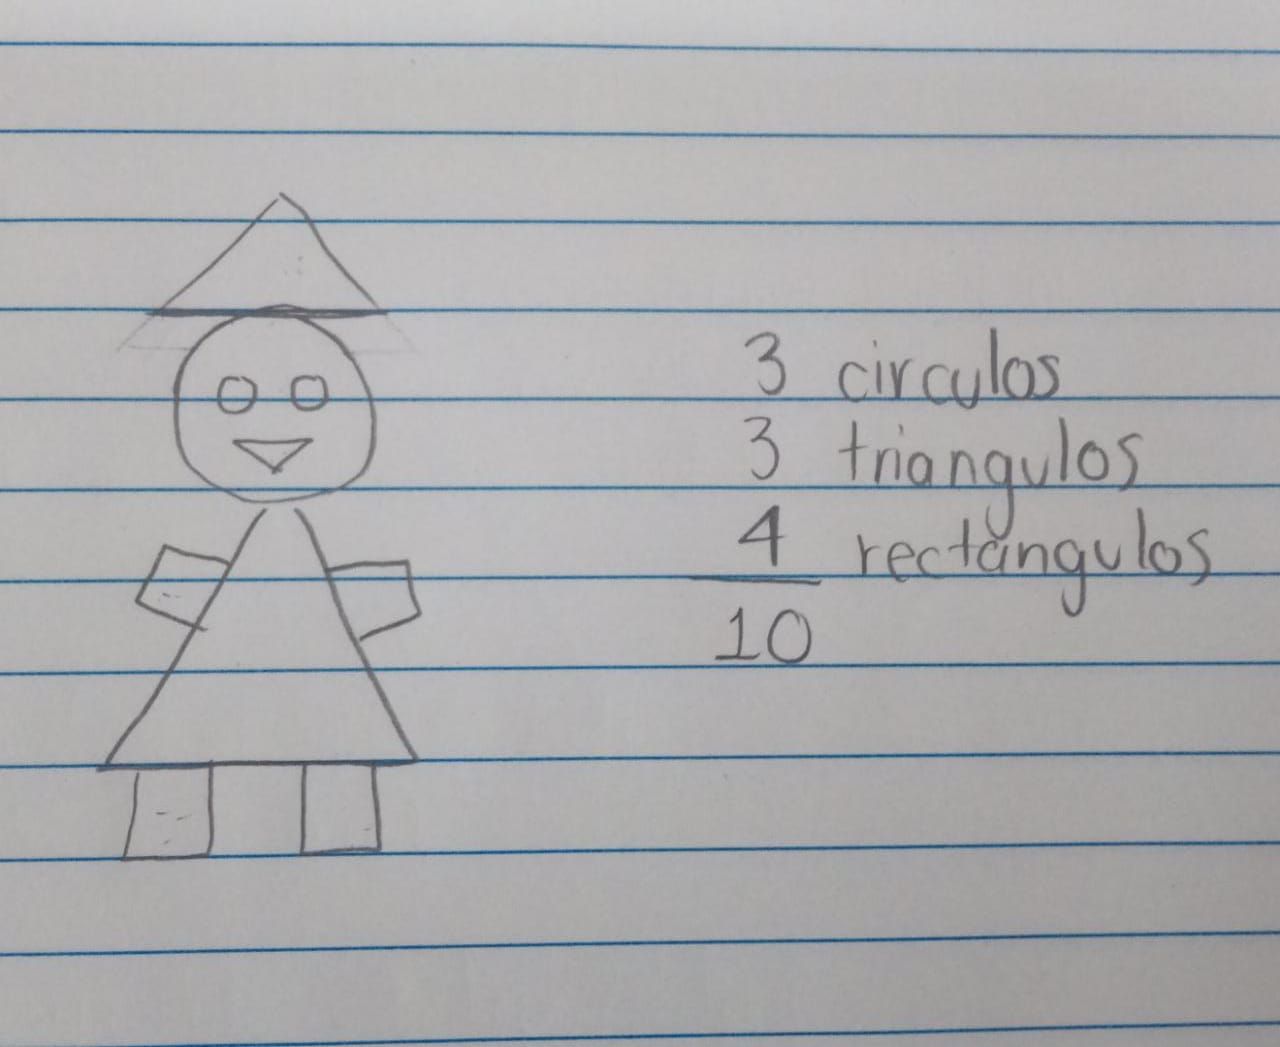 3 circulos
3 triangulos
4 rectángulos
10